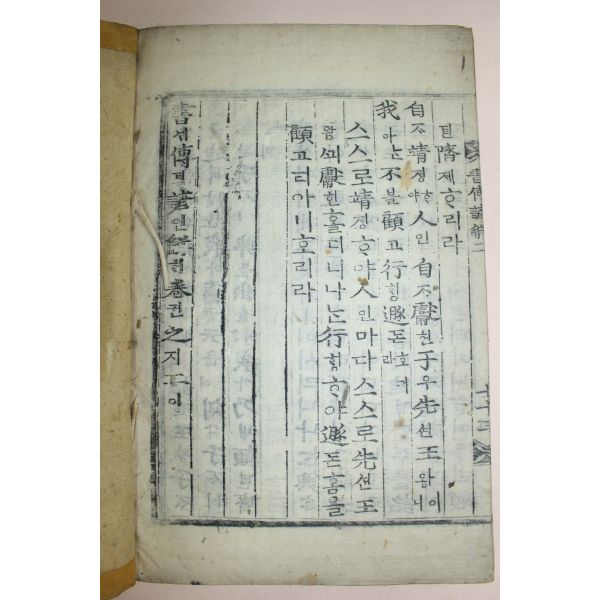 書傳諺解二
뎐隮졔ᄒᆞ리라
自ᄌᆞ靖졍ᄒᆞ야人인自ᄌᆞ獻헌于우先션王왕이니
我아ᄂᆞᆫ不블顧고行ᄒᆡᆼ遯돈호
스스로靖졍ᄒᆞ야人인마다스스로先션王
왕ᄭᅴ獻헌홀디니나ᄂᆞᆫ行ᄒᆡᆼᄒᆞ야遯돈홈을
顧고티아니호리라
書셔傳뎐諺언解ᄒᆡ卷권之지二이